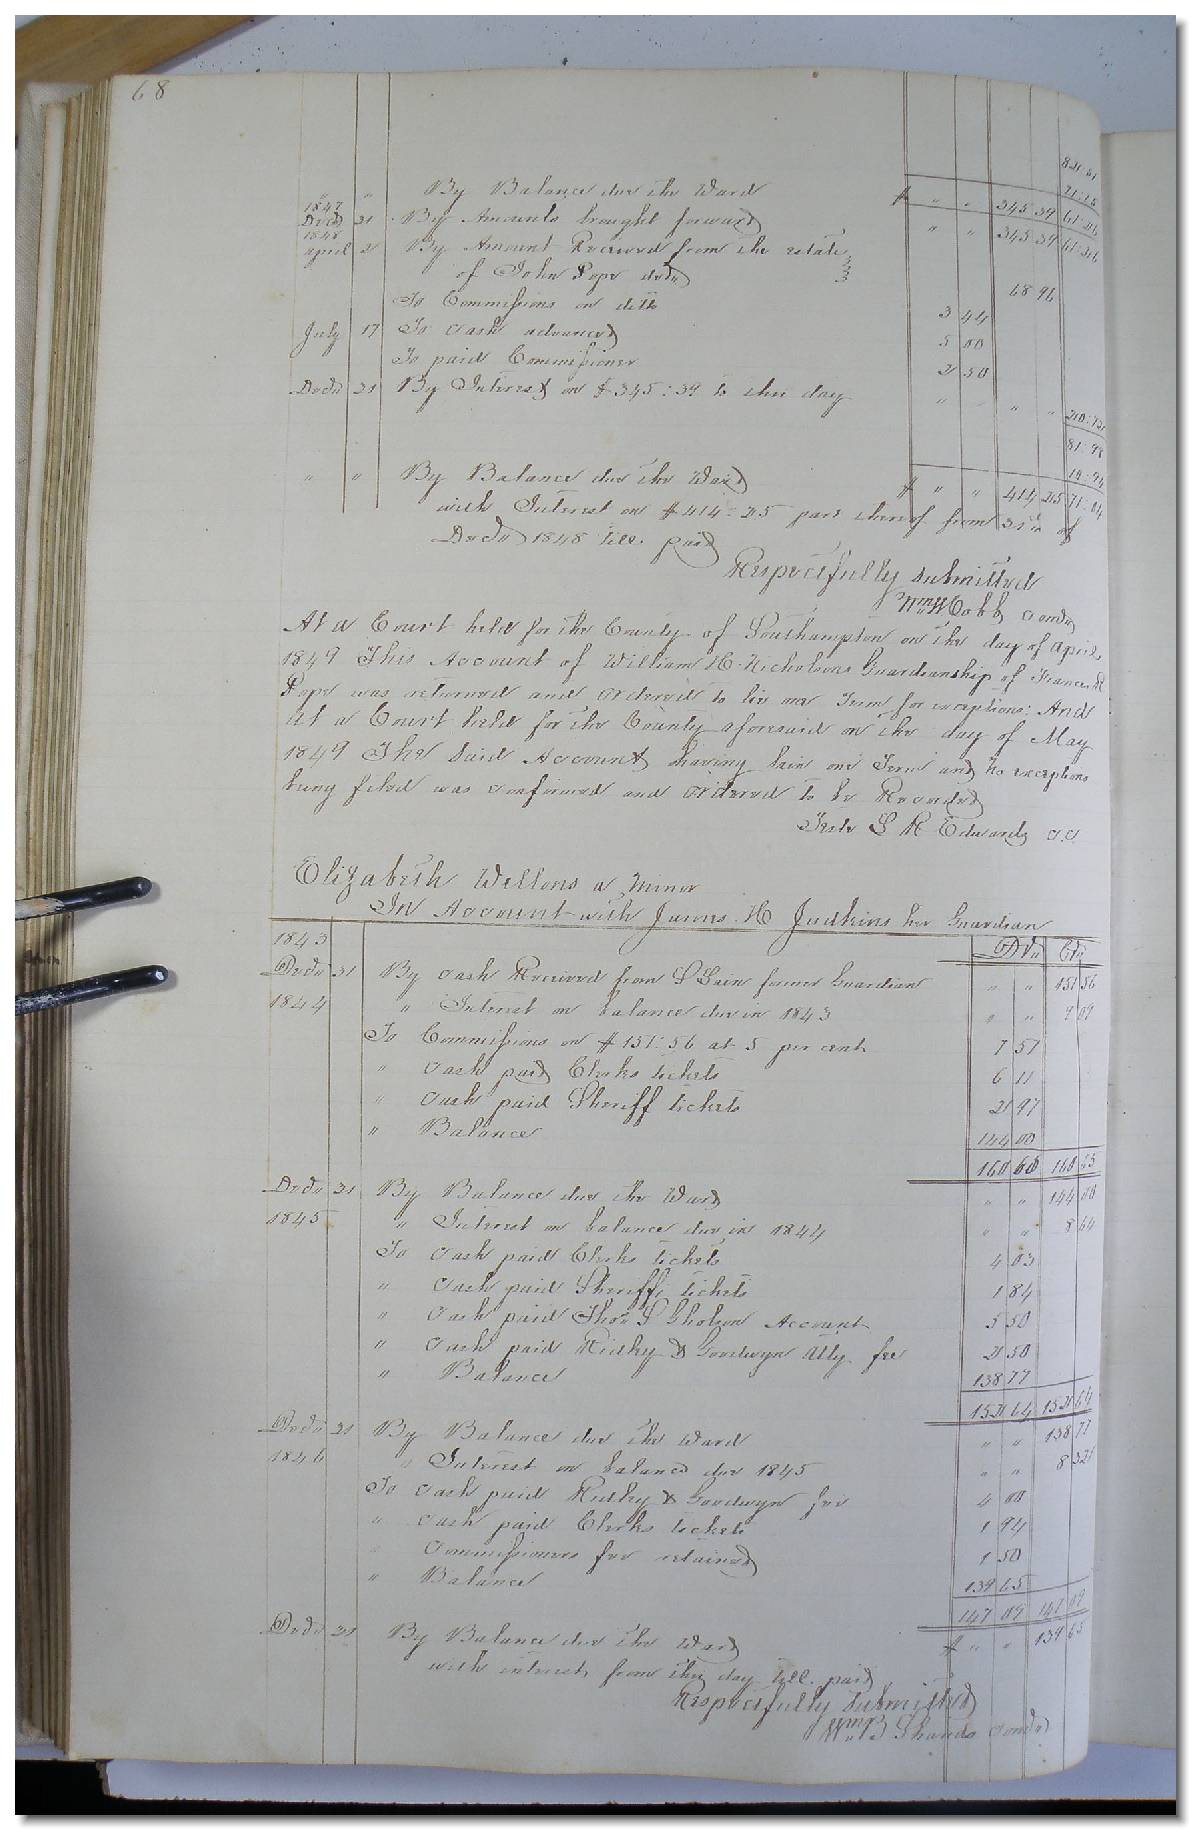 68
82:01
" " By Balance due the Ward $ " " 345 39 61:06
1847
Decr 31 By Amounts brought forward " " 345 39
1848
april 2 By Amount Received from the estate
of John Pope decd 68 96
To Commissions on ditto 3 44
July 17 To Cash advanced 5 00
To paid Commissioner 2 50
Decr 31 By Interest on $345:39 to this day " " " " 20:72
81:78
10:94
" " By Balance due the Ward $ " " 414 25 71:04
with Interest on $414:25 part thereof from 31st of
Decr 1848 till paid
Respectfully submitted
Wm W Cobb Comr
At a Court held for the County of Southampton on the day of April
1849 This Account of William H Nicholsons Guardianship of Frances R
Pope was returned and ordered to lie one Term for exceptions: And
at a Court held for the County aforesaid on the day of May
1849 The said Account having lain one Term and no exceptions
being filed was confirmed and ordered to be Recorded
Teste L R Edwards C.C.
Elizabeth Wellons a minor
In Account with James H Judkins her Guardian
1843 Dr Cr
Decr 31 By Cash Received from S Bain former Guardian " " 151 56
1844 " Interest on balance due in 1843 " " 9 09
To Commissions on $151:56 at 5 per cent 7 57
" Cash paid Clerks tickets 6 11
" Cash paid Sheriff tickets 2 97
" Balance 144 00
160 65 160 65
Decr 31 By Balance due the Ward " " 144 00
1845 " Interest on balance due in 1844 " " 8 64
To Cash paid Clerks tickets 4 03
" Cash paid Sheriffs tickets 1 84
" Cash paid Thos S Gholson Account 5 50
" Cash paid Ridley & Goodwyn Atty fee 2 50
" Balance 138 77
152 64 152 64
Decr 31 By Balance due the Ward " " 138 77
1846 " Interest on balance due 1845 " " 8 32
To Cash paid Ridley & Goodwyn fee 4 00
" Cash paid Clerks tickets 1 94
" Commissioners fee retained 1 50
" Balance 139 65
147 09 147 09
Decr 31 By Balance due the Ward $ " " 139 65
with interest from this day till paid
Respectfully submitted
Wm B Shands Comr